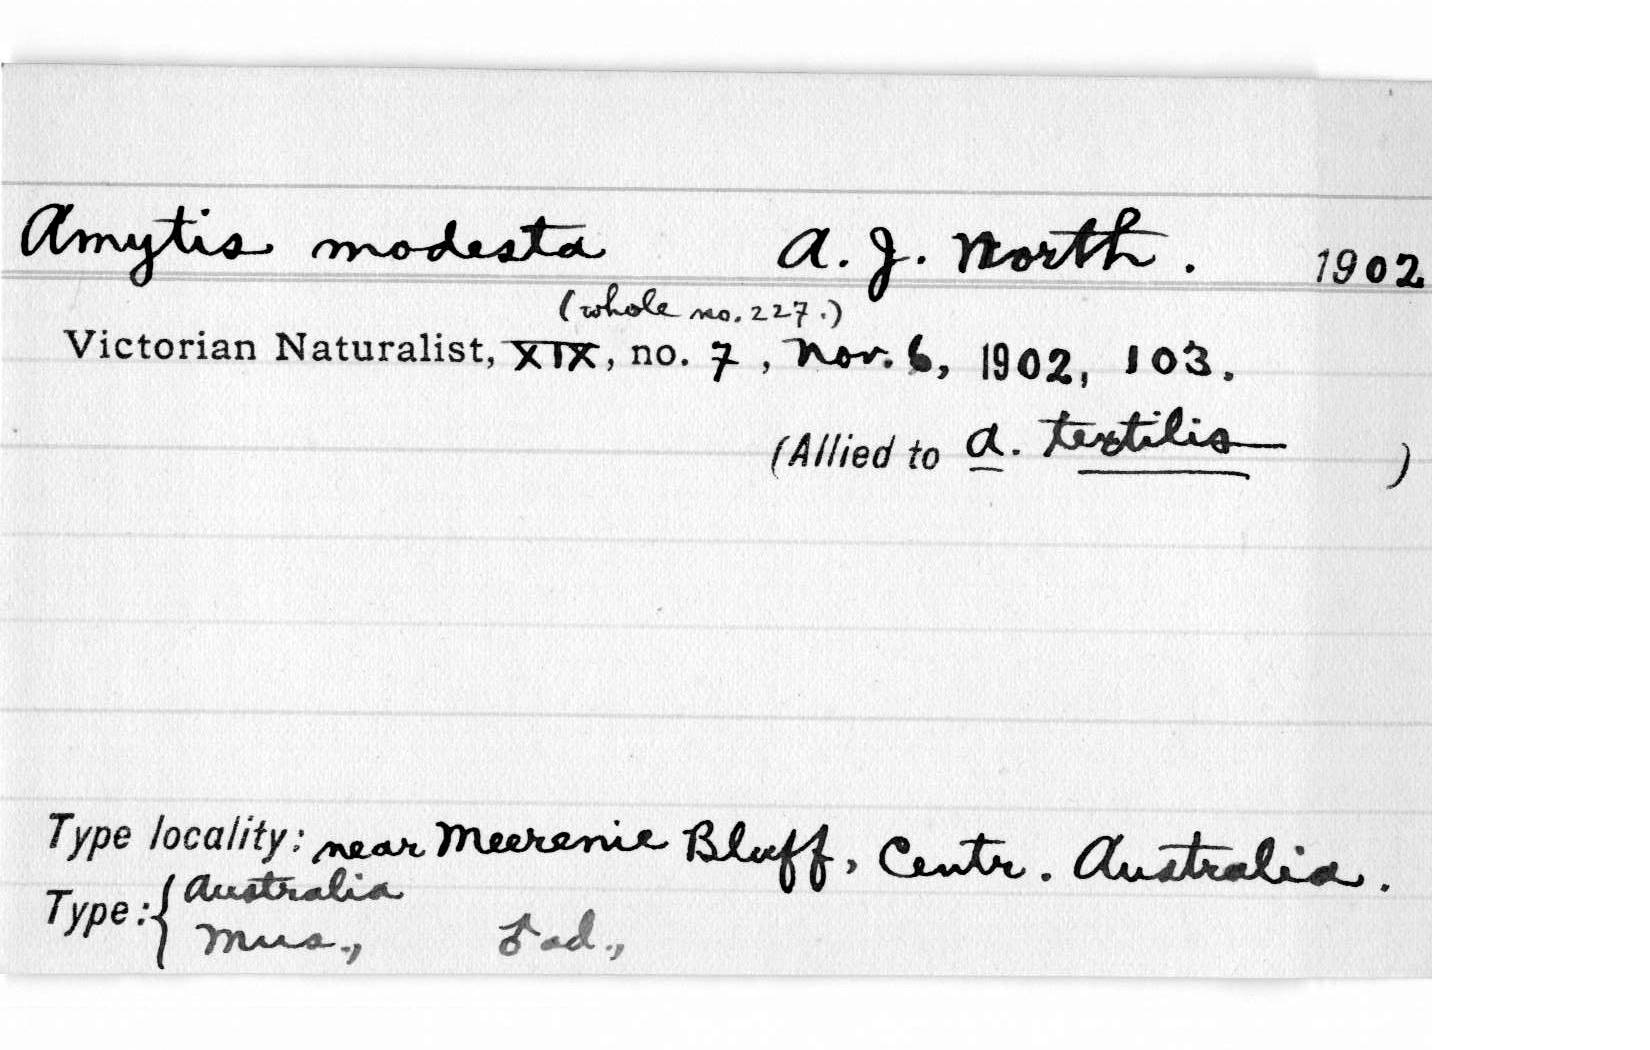 Amytis modesta A. J. North. 1902
(whole no. 227.)
Victorian Naturalist, XIX, no. 7, Nov. 6, 1902, 103.
(Allied to A. textilis )
Type locality: near Meerenie Bluff, Centr. Australia.
Type: { Australia
Mus., ♂ ad.,